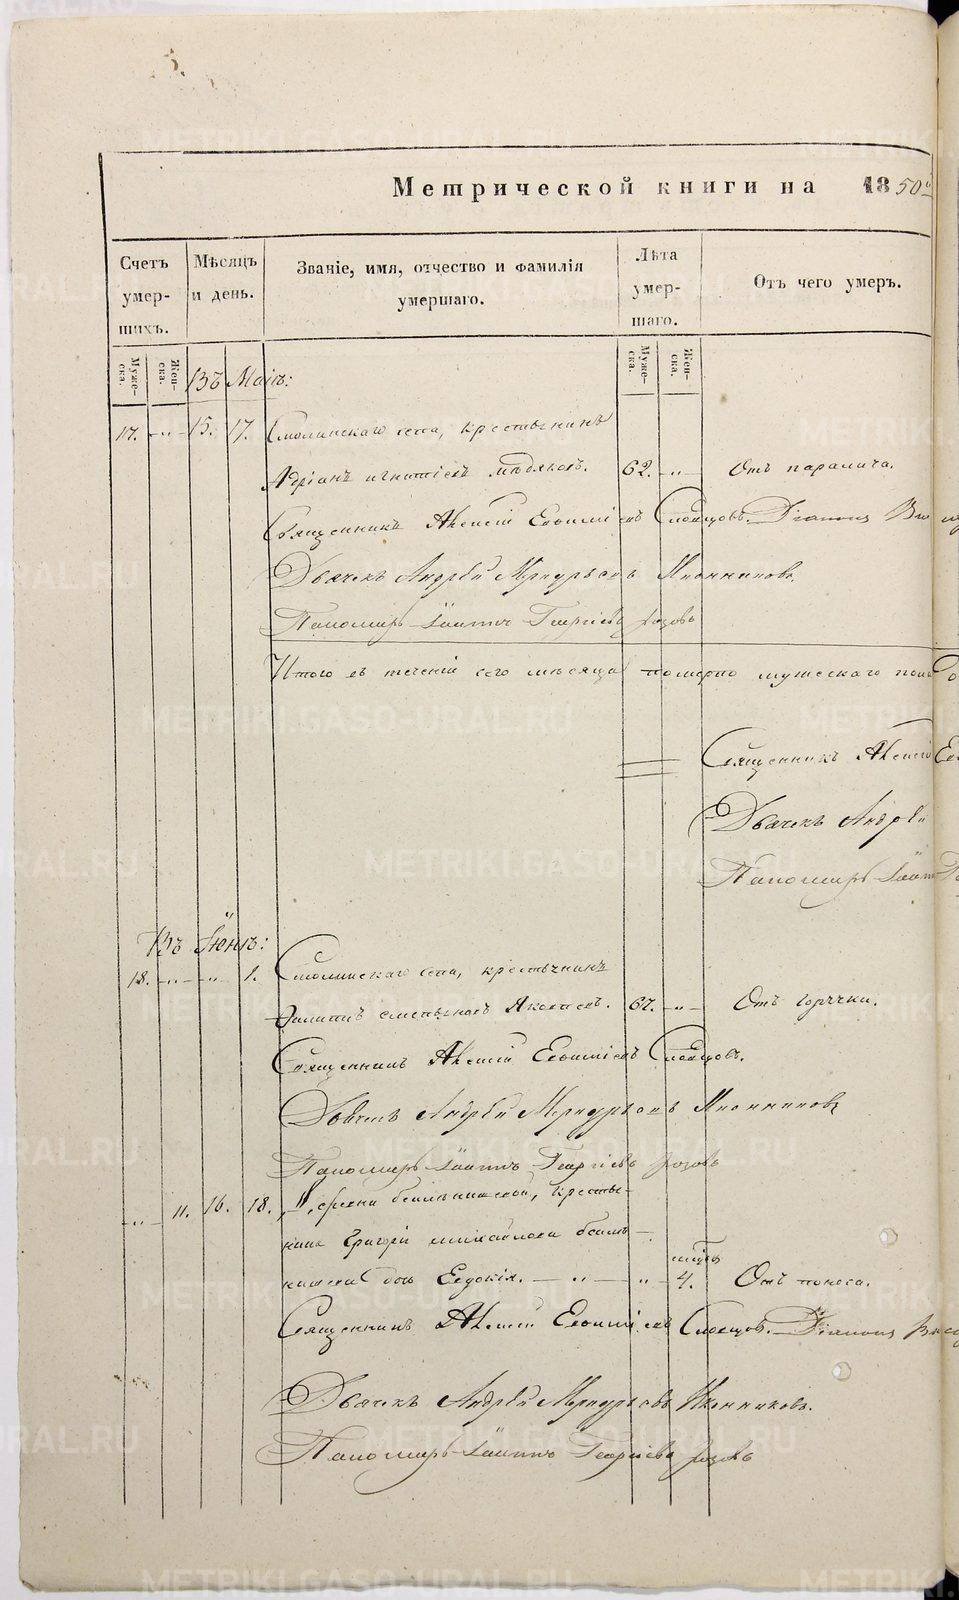 Метрической книги на 1850й
Счетъ умер- шихъ.
Мѣсяцъ и день.
Званіе, имя, отчество и фамилія умершаго.
Лѣта умер- шаго.
Отъ чего умеръ.
Муже- ска.
Жен- ска.
Муже- ска.
Жен- ска.
Въ Маіѣ:
17. — „ — 15. 17. Смолинскаго села, крестьянинъ
Адріанъ Медвѣдевъ. 62. — „ — Отъ паралича.
Священникъ Алексій Евѳиміевъ Словцовъ. Діаконъ
Дьячекъ Андрей Меркурьевъ Иконниковъ
Пономарь Іоаннъ Георгіевъ Розовъ
Итого въ теченіи сего мѣсяца померло мужескаго пола
Священникъ Алексій
Дьячекъ Андрей
Пономарь Іоаннъ
Въ Іюнѣ:
18. — „ — „ — 1. Смолинскаго села, крестьянинъ
Филиппъ Яковлевъ. 67. — „ — Отъ горячки.
Священникъ Алексій Евѳиміевъ Словцовъ.
Дьячекъ Андрей Меркурьевъ Иконниковъ
Пономарь Іоаннъ Георгіевъ Розовъ
— „ — 11. 16. 18. Деревни крестья-
нина Григорія Михайлова
дочь Евдокія. — „ — „ — 4. Отъ поноса.
Священникъ Алексій Евѳиміевъ Словцовъ. Діаконъ
Дьячекъ Андрей Меркурьевъ Иконниковъ.
Пономарь Іоаннъ Георгіевъ Розовъ
METRIKI.GASO-URAL.RU